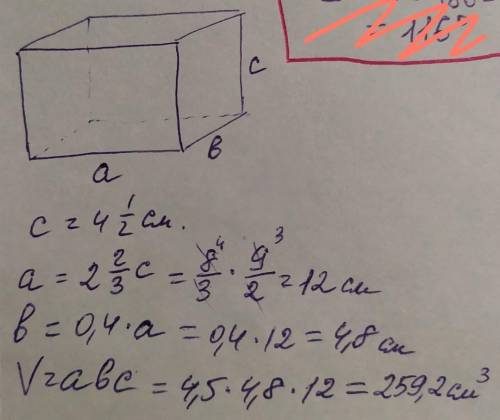 = 1152
c
a
в
c = 4 1/2 см.
a = 2 2/3 c = 8/3 · 9/2 = 12 см
4 3
в = 0,4 · a = 0,4 · 12 = 4,8 см
V = aвc = 4,5 · 4,8 · 12 = 259,2 см³